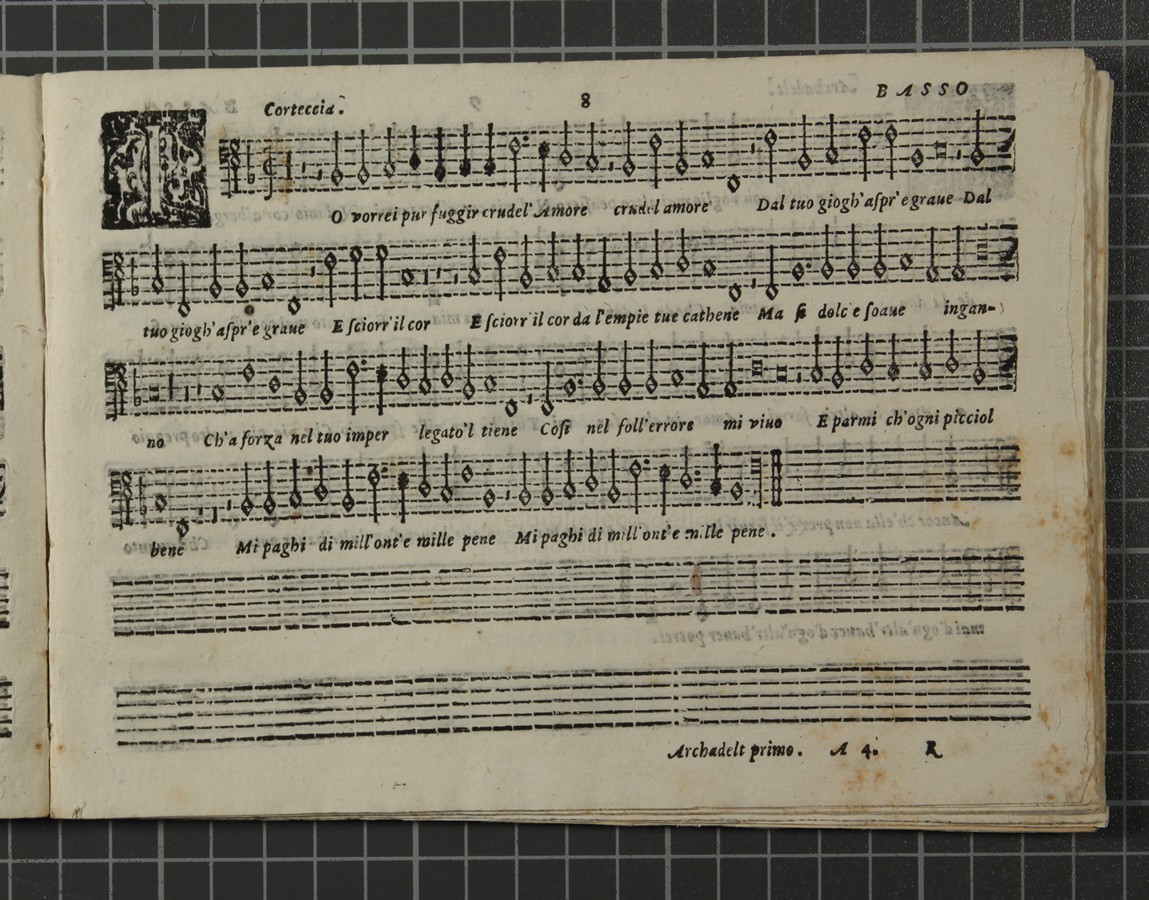 Corteccia. 8 BASSO
IO vorrei pur fuggir crudel' Amore crudel amore Dal tuo giogh'aſpr'e graue Dal
tuo giogh'aſpr'e graue E ſciorr'il cor E ſciorr'il cor da l'empie tue cathene Ma ſi dolc e ſoaue ingan-
no Ch'a forza nel tuo imper legato'l tiene Coſi nel foll'errore mi viuo E parmi ch'ogni picciol
bene Mi paghi di mill'ont'e mille pene Mi paghi di mill'ont'e mille pene.
Archadelt primo. A 4. R